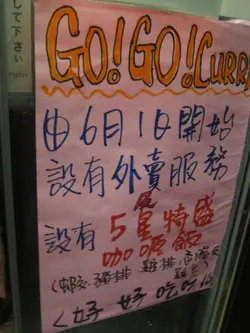 して下さい
GO!GO!CURRY
由6月1日開始
設有外賣服務
設有5星級特盛
咖喱飯
(蝦、豬排、雞排、香腸、
<好好吃吖